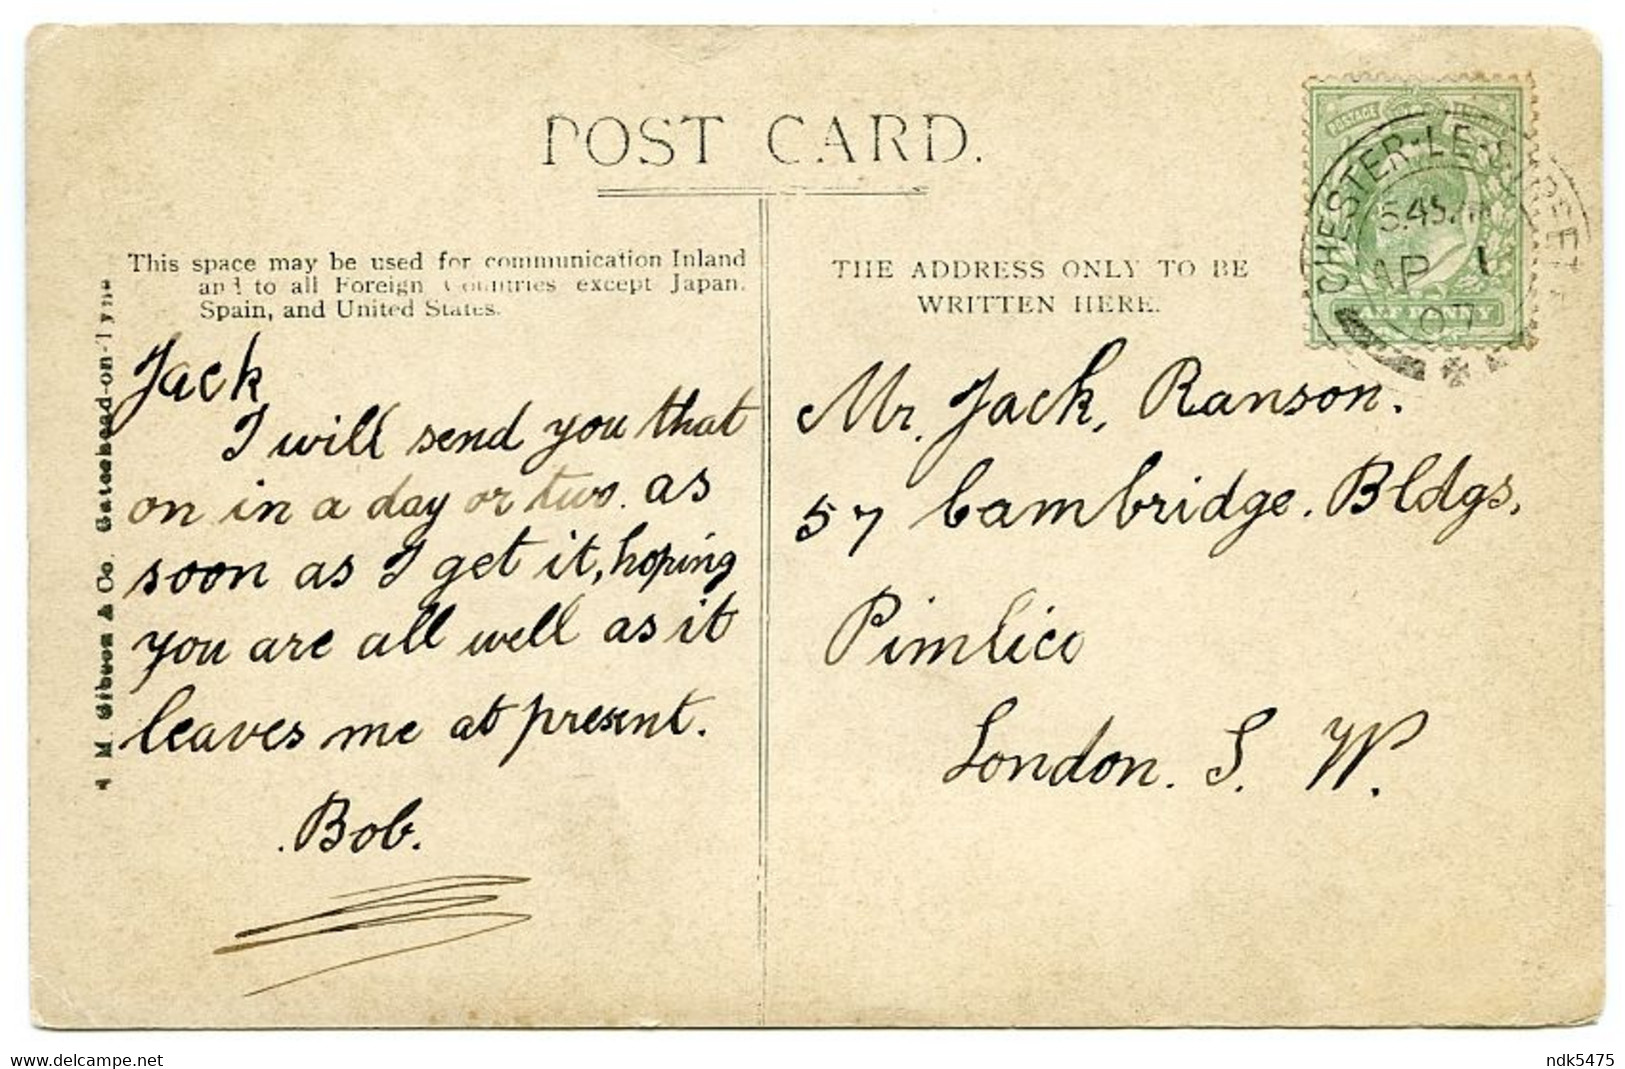 POST CARD.
This space may be used for communication Inland
and to all Foreign Countries except Japan,
Spain, and United States.
THE ADDRESS ONLY TO BE
WRITTEN HERE.
CHESTER-LE-STREET
5.45
AP 1
07
POSTAGE
HALF PENNY
M. Gibson & Co. Gateshead-on-Tyne
Jack
I will send you that
on in a day or two. as
soon as I get it, hoping
you are all well as it
leaves me at present.
. Bob.
Mr. Jack, Ranson.
57 Cambridge. Bldgs,
Pimlico
London. S. W.
delcampe.net
ndk5475